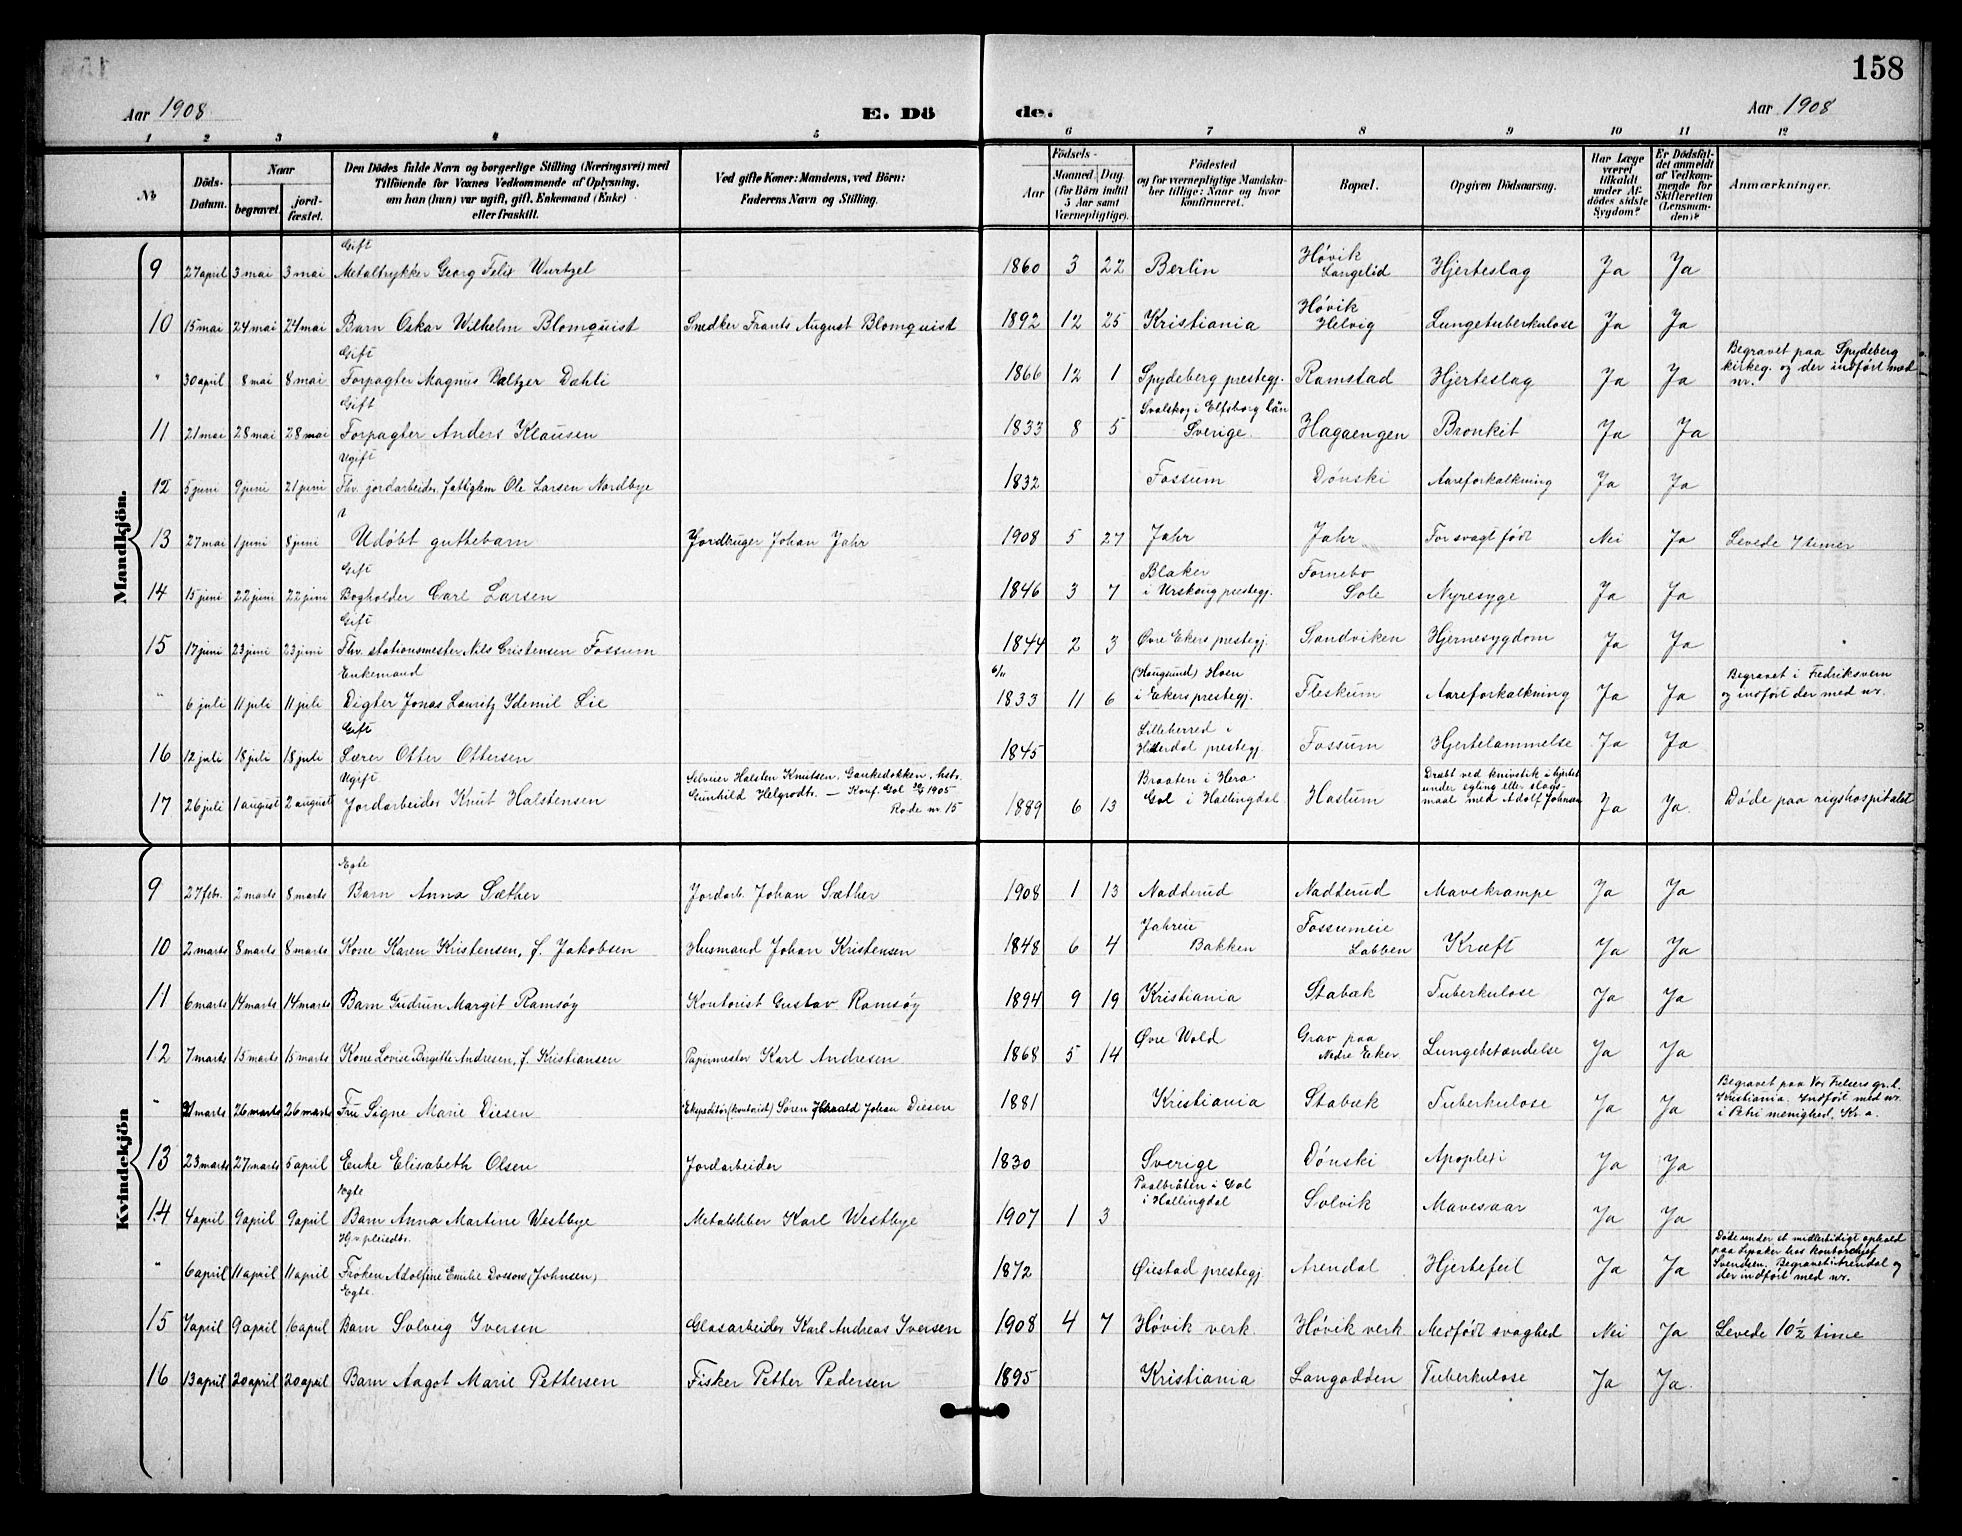 158
Aar 1908 E. Dö de. Aar 1908
1 2 3 4 5 6 7 8 9 10 11 12
№ Döds-Datum. Naar begravet. jord-fæstet. Den Dödes fulde Navn og borgerlige Stilling (Næringsvei) med Tilföiende for Voxnes Vedkommende af Oplysning, om han (hun) var ugift, gift, Enkemand (Enke) eller fraskilt. Ved gifte Koner: Mandens, ved Börn: Faderens Navn og Stilling. Födsels- Aar Maaned Dag (for Börn indtil 5 Aar samt Værnepligtige). Födested og for værnepligtige Mandska-ber tillige: Naar og hvor konfirmeret. Bopæl. Opgiven Dödsaarsag. Har Læge været tilkaldt under Af-dödes sidste Sygdom? Er Dödsfal-det anmeldt af Vedkom-mende for Skifteretten (Lensman-den)? Anmærkninger.
Mandkjön.
Gift
9 27 april 3 mai 3 mai Metaltrykker Georg Felix Wurtzel — 1860 3 22 Berlin Høvik Langelid Hjerteslag Ja Ja
10 15 mai 24 mai 24 mai Barn Oskar Wilhelm Blomquist Snedker Frants August Blomquist 1892 12 25 Kristiania Høvik Helvig Lungetuberkulose Ja Ja
Gift
" 30 april 8 mai 8 mai Forpagter Magnus Baltzer Dæhli 1866 12 1 Spydeberg prestegj. Ramstad Hjerteslag Ja Ja Begravet paa Spydeberg kirkeg. og der indført med nr.
Gift
11 21 mai 28 mai 28 mai Forpagter Anders Klausen 1833 8 5 i Elfsborg län Sverige. Hagaengen Bronkit Ja Ja
Ugift
12 5 juni 9 juni 21 juni Fhv. jordarbeider, fattiglem Ole Larsen Nordbye 1832 Fossum Dønski Aareforkalkning Ja Ja
13 27 mai 1 juni 8 juni Udøbt guttebarn Jordbruger Johan Jahr 1908 5 27 Jahr Jahr For svagt født Nei Ja Levede 7 timer
Gift
14 15 juni 22 juni 22 juni Bogholder Carl Larsen 1846 3 7 Blaker i Urskoug prestegj. Fornebo Sole Nyresyge Ja Ja
Gift
15 17 juni 23 juni 23 juni Fhv. stationsmester Nils Cristensen Fossum 1844 2 3 Øvre Ekers prestegj. Sandviken Hjernesygdom Ja Ja
Enkemand
" 6 juli 11 juli 11 juli Digter Jonas Lauritz Idemil Lie 6/11 1833 11 6 (Hougsund) Hoen i Ekers prestegj. Fleskum Aareforkalkning Ja Ja Begravet i Fredriksvern og indført der med nr.
Gift
16 12 juli 18 juli 18 juli Lærer Otter Ottersen 1845 Lilleherred i Hitterdal prestegj. Fossum Hjertelammelse Ja Ja
Ugift
17 26 juli 1 august 2 august Jordarbeider Knut Halstensen Selveier Halsten Knutsen, Gaukedokken, hstr. Gunhild Helgesdtr. — Konf. Gol 1905 Rode nr. 15 1889 6 13 Braaten i Gol i Hallingdal Haslum Dræbt ved knivstik i hjertet under egling eller slags-maal med Adolf Johnsen Ja Ja. Døde paa rigshospitalet
Kvindekjön
Egte
9 27 febr. 2 marts 8 marts Barn Anna Sæther Jordarb. Johan Sæther 1908 1 13 Nadderud Nadderud Mavekrampe Ja Ja
10 2 marts 8 marts 8 marts Kone Karen Kristensen, f. Jakobsen Husmand Johan Kristensen 1848 6 4 Jahreie Bakken Fossumeie Labben Kræft Ja Ja
11 6 marts 14 marts 14 marts Barn Gudrun Margit Ramsøy Kontorist Gustav Ramsøy 1894 9 19 Kristiania Stabæk Tuberkulose Ja Ja
12 7 marts 15 marts 15 marts Kone Lovise Birgitte Andresen, f. Kristiansen Papirmester Karl Andresen 1868 5 14 Øvre Wold Grav paa Nedre Eker Lungebetændelse Ja Ja
" 21 marts 26 marts 26 marts Fru Signe Marie Diesen Ekspeditør (kontorist) Søren Harald Johan Diesen 1881 Kristiania Stabæk Tuberkulose Ja Ja Begravet paa Vor Frelsers gr.l. Kristiania. Indført med nr. i Petri menighed, Kr.a.
13 23 marts 27 marts 5 april Enke Elisabeth Olsen Jordarbeider 1830 Sverige Dønski Apoplexi Ja Ja
Egte
14 4 april 9 april 9 april Barn Anna Martine Westbye Metalsliber Karl Westbye 1907 1 3 Paalbråten i Gol i Hallingdal Solvik Mavesaar Ja Ja
" 6 april 11 april 11 april Frøken Adolfine Emilie Dossow (Johnsen) 1872 Øiestad prestegj. Arendal Hjertefeil Ja Ja Døde under et midlertidigt ophold paa Lysaker hos kontorchef Svendsen. Begravet i Arendal og der indført med nr.
Egte
15 7 april 9 april 16 april Barn Solveig Iversen Glasarbeider Karl Andreas Iversen 1908 4 7 Høvik verk. Høvik verk Medfødt svaghed Nei Ja Levede 10 ½ time
16 13 april 20 april 20 april Barn Aagot Marie Pettersen Fisker Petter Pedersen 1895 Kristiania Langodden Tuberkulose Ja Ja.